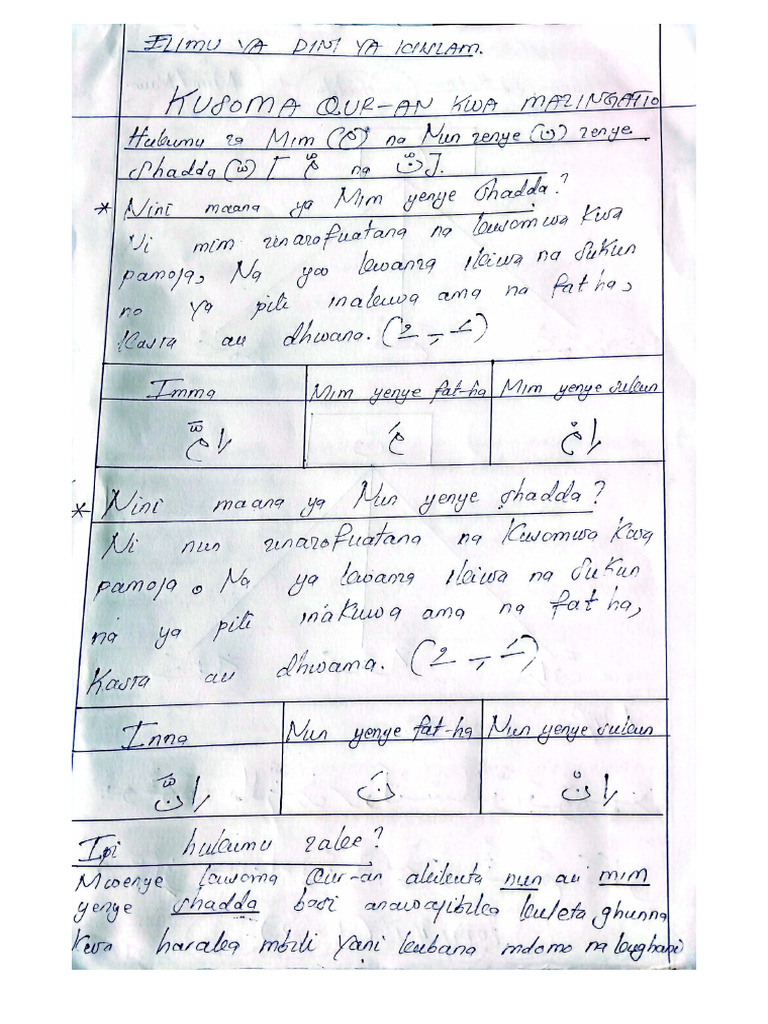 ELIMU YA DINI YA KIISLAM.
KUSOMA QUR-AN KWA MAZINGATIO
Hukumu za Mim (م) na Nun zenye (ن) zenye
Shadda (ّ) [ مّ na نّ ].
* Nini maana ya Mim yenye Shadda?
Ni mim zinazofuatana na kusomwa kwa
pamoja, Na ya kwanza ikiwa na sukun
na ya pili inakuwa ama na fat ha,
Kasra au dhwana.
Imma Mim yenye fat-ha Mim yenye sukun
إمّ مَ إمْ
* Nini maana ya Nun yenye shadda?
Ni nun zinazofuatana na Kusomwa kwa
pamoja. Na ya kwanza ikiwa na sukun
na ya pili inakuwa ama na fat ha,
Kasra au dhwama.
Inna Nun yenye fat-ha Nun yenye sukun
إنّ نَ إنْ
Ipi hukumu zake?
Mwenye kusoma Qur-an akikuta nun au mim
yenye shadda basi anawajibika kuleta ghunna
Kwa haraka mbili yani kubana mdomo na